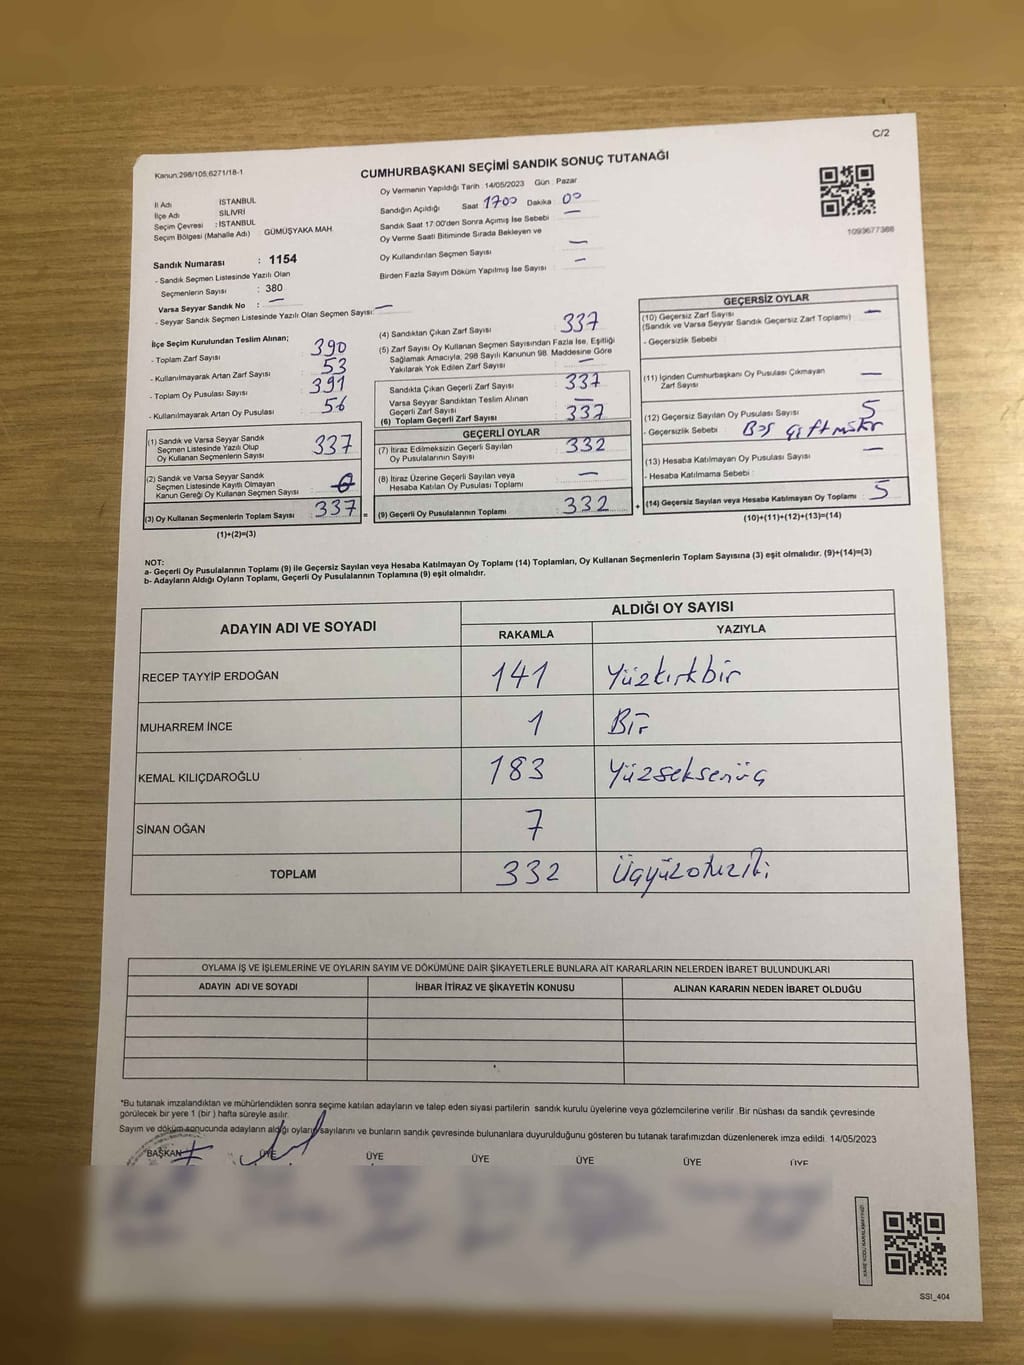 C/2
Kanun:298/105;6271/18-1
CUMHURBAŞKANI SEÇİMİ SANDIK SONUÇ TUTANAĞI
İl Adı : İSTANBUL
İlçe Adı : SİLİVRİ
Seçim Çevresi : İSTANBUL
Seçim Bölgesi (Mahalle Adı) GÜMÜŞYAKA MAH.
Sandık Numarası : 1154
- Sandık Seçmen Listesinde Yazılı Olan
Seçmenlerin Sayısı : 380
Varsa Seyyar Sandık No : —
- Seyyar Sandık Seçmen Listesinde Yazılı Olan Seçmen Sayısı: —
Oy Vermenin Yapıldığı Tarih : 14/05/2023 Gün : Pazar
Sandığın Açıldığı Saat 1700 Dakika 00
Sandık Saat 17:00'den Sonra Açımış İse Sebebi —
Oy Verme Saati Bitiminde Sırada Bekleyen ve
Oy Kullandırılan Seçmen Sayısı —
Birden Fazla Sayım Döküm Yapılmış İse Sayısı : —
1093677368
İlçe Seçim Kurulundan Teslim Alınan;
- Toplam Zarf Sayısı 390
- Kullanılmayarak Artan Zarf Sayısı 53
- Toplam Oy Pusulası Sayısı 391
- Kullanılmayarak Artan Oy Pusulası 56
(1) Sandık ve Varsa Seyyar Sandık
Seçmen Listesinde Yazılı Olup
Oy Kullanan Seçmenlerin Sayısı 337
(2) Sandık ve Varsa Seyyar Sandık
Seçmen Listesinde Kayıtlı Olmayan
Kanun Gereği Oy Kullanan Seçmen Sayısı 0
(3) Oy Kullanan Seçmenlerin Toplam Sayısı 337 =
(1)+(2)=(3)
(4) Sandıktan Çıkan Zarf Sayısı 337
(5) Zarf Sayısı Oy Kullanan Seçmen Sayısından Fazla İse, Eşitliği
Sağlamak Amacıyla, 298 Sayılı Kanunun 98. Maddesine Göre
Yakılarak Yok Edilen Zarf Sayısı : —
Sandıkta Çıkan Geçerli Zarf Sayısı : 337
Varsa Seyyar Sandıktan Teslim Alınan
Geçerli Zarf Sayısı —
(6) Toplam Geçerli Zarf Sayısı : 337
GEÇERLİ OYLAR
(7) İtiraz Edilmeksizin Geçerli Sayılan
Oy Pusulalarının Sayısı : 332
(8) İtiraz Üzerine Geçerli Sayılan veya
Hesaba Katılan Oy Pusulası Toplamı : —
(9) Geçerli Oy Pusulalarının Toplamı : 332 +
GEÇERSİZ OYLAR
(10) Geçersiz Zarf Sayısı
(Sandık ve Varsa Seyyar Sandık Geçersiz Zarf Toplamı) —
- Geçersizlik Sebebi
(11) İçinden Cumhurbaşkanı Oy Pusulası Çıkmayan
Zarf Sayısı —
(12) Geçersiz Sayılan Oy Pusulası Sayısı : 5
- Geçersizlik Sebebi : Boş
(13) Hesaba Katılmayan Oy Pusulası Sayısı : —
- Hesaba Katılmama Sebebi :
(14) Geçersiz Sayılan veya Hesaba Katılmayan Oy Toplamı : 5
(10)+(11)+(12)+(13)=(14)
NOT:
a- Geçerli Oy Pusulalarının Toplamı (9) ile Geçersiz Sayılan veya Hesaba Katılmayan Oy Toplamı (14) Toplamları, Oy Kullanan Seçmenlerin Toplam Sayısına (3) eşit olmalıdır. (9)+(14)=(3)
b- Adayların Aldığı Oyların Toplamı, Geçerli Oy Pusulalarının Toplamına (9) eşit olmalıdır.
ADAYIN ADI VE SOYADI
ALDIĞI OY SAYISI
RAKAMLA YAZIYLA
RECEP TAYYİP ERDOĞAN 141 Yüzkırkbir
MUHARREM İNCE 1 Bir
KEMAL KILIÇDAROĞLU 183 Yüzseksenüç
SİNAN OĞAN 7
TOPLAM 332 Üçyüzotuziki
OYLAMA İŞ VE İŞLEMLERİNE VE OYLARIN SAYIM VE DÖKÜMÜNE DAİR ŞİKAYETLERLE BUNLARA AİT KARARLARIN NELERDEN İBARET BULUNDUKLARI
ADAYIN ADI VE SOYADI İHBAR İTİRAZ VE ŞİKAYETİN KONUSU ALINAN KARARIN NEDEN İBARET OLDUĞU
*Bu tutanak imzalandıktan ve mühürlendikten sonra seçime katılan adayların ve talep eden siyasi partilerin sandık kurulu üyelerine veya gözlemcilerine verilir. Bir nüshası da sandık çevresinde
görülecek bir yere 1 (bir ) hafta süreyle asılır.
Sayım ve döküm sonucunda adayların aldığı oyların sayılarını ve bunların sandık çevresinde bulunanlara duyurulduğunu gösteren bu tutanak tarafımızdan düzenlenerek imza edildi. 14/05/2023
BAŞKAN ÜYE ÜYE ÜYE ÜYE ÜYE ÜYE
SSI_404